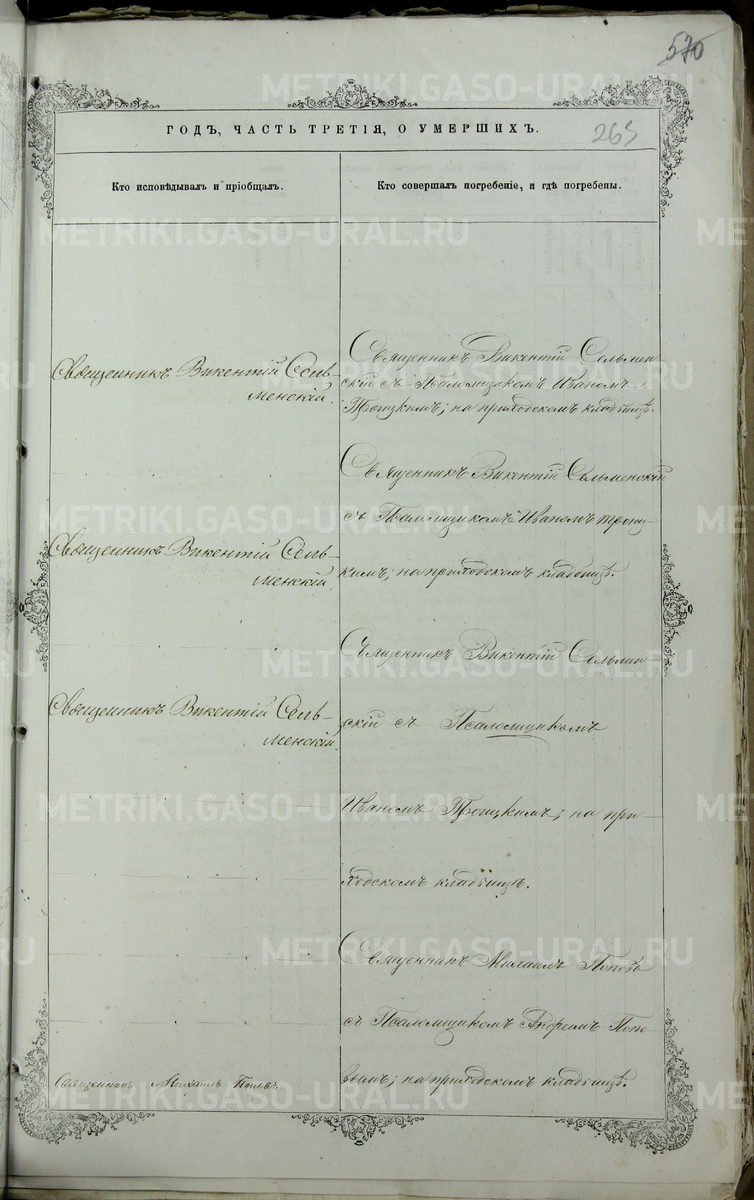 570
265
ГОДЪ, ЧАСТЬ ТРЕТІЯ, О УМЕРШИХЪ.
Кто исповѣдывалъ и пріобщалъ.
Кто совершалъ погребеніе, и гдѣ погребены.
Священникъ Викентій Сель-
менскій.
Священникъ Викентій Сельмен-
скій съ Псаломщикомъ Иваномъ
Троицкимъ; на приходскомъ кладбищѣ.
Священникъ Викентій Сельменскій
съ Псаломщикомъ Иваномъ Троиц-
кимъ; на приходскомъ кладбищѣ.
Священникъ Викентій Сель-
менскій.
Священникъ Викентій Сельмен-
скій съ Псаломщикомъ
Иваномъ Троицкимъ; на при-
ходскомъ кладбищѣ.
Священникъ Викентій Сель-
менскій.
Священникъ Михаилъ Поповъ
съ Псаломщикомъ Андреемъ Попо-
вымъ; на приходскомъ кладбищѣ.
Священникъ Михаилъ Поповъ.
METRIKI.GASO-URAL.RU